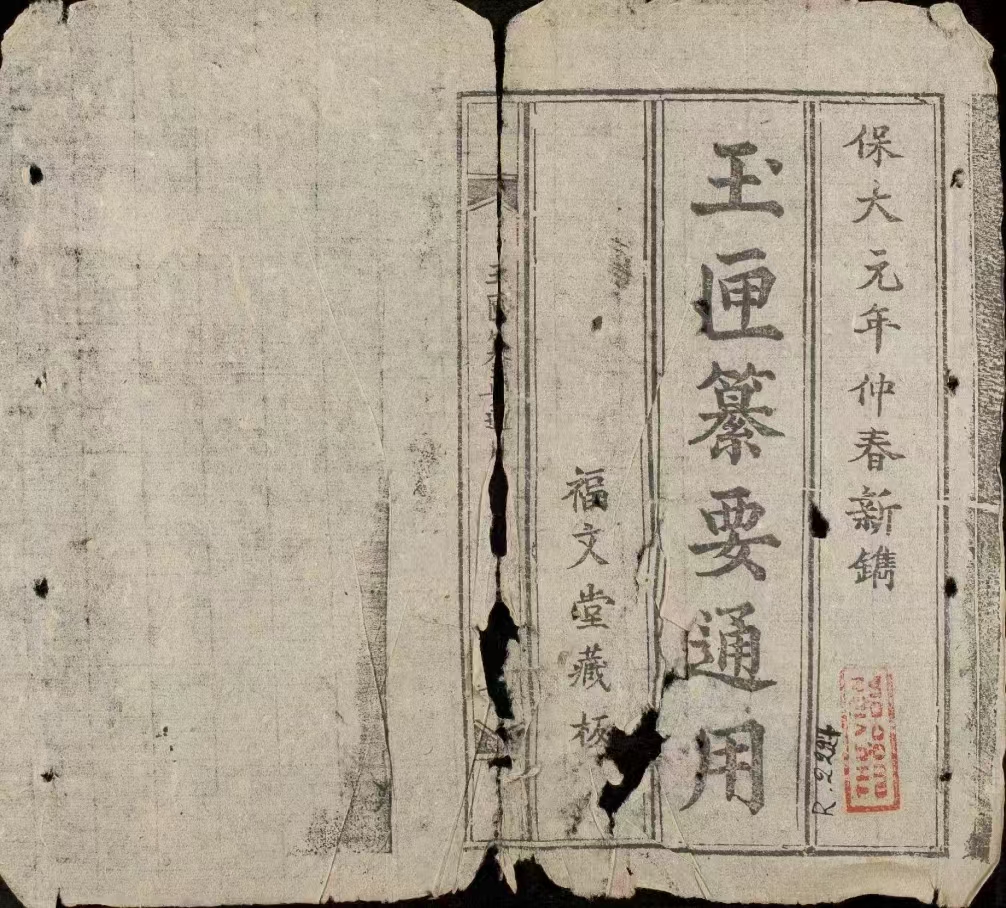 保大元年仲春新鐫
R.2224
玉匣纂要通用
福文堂藏板